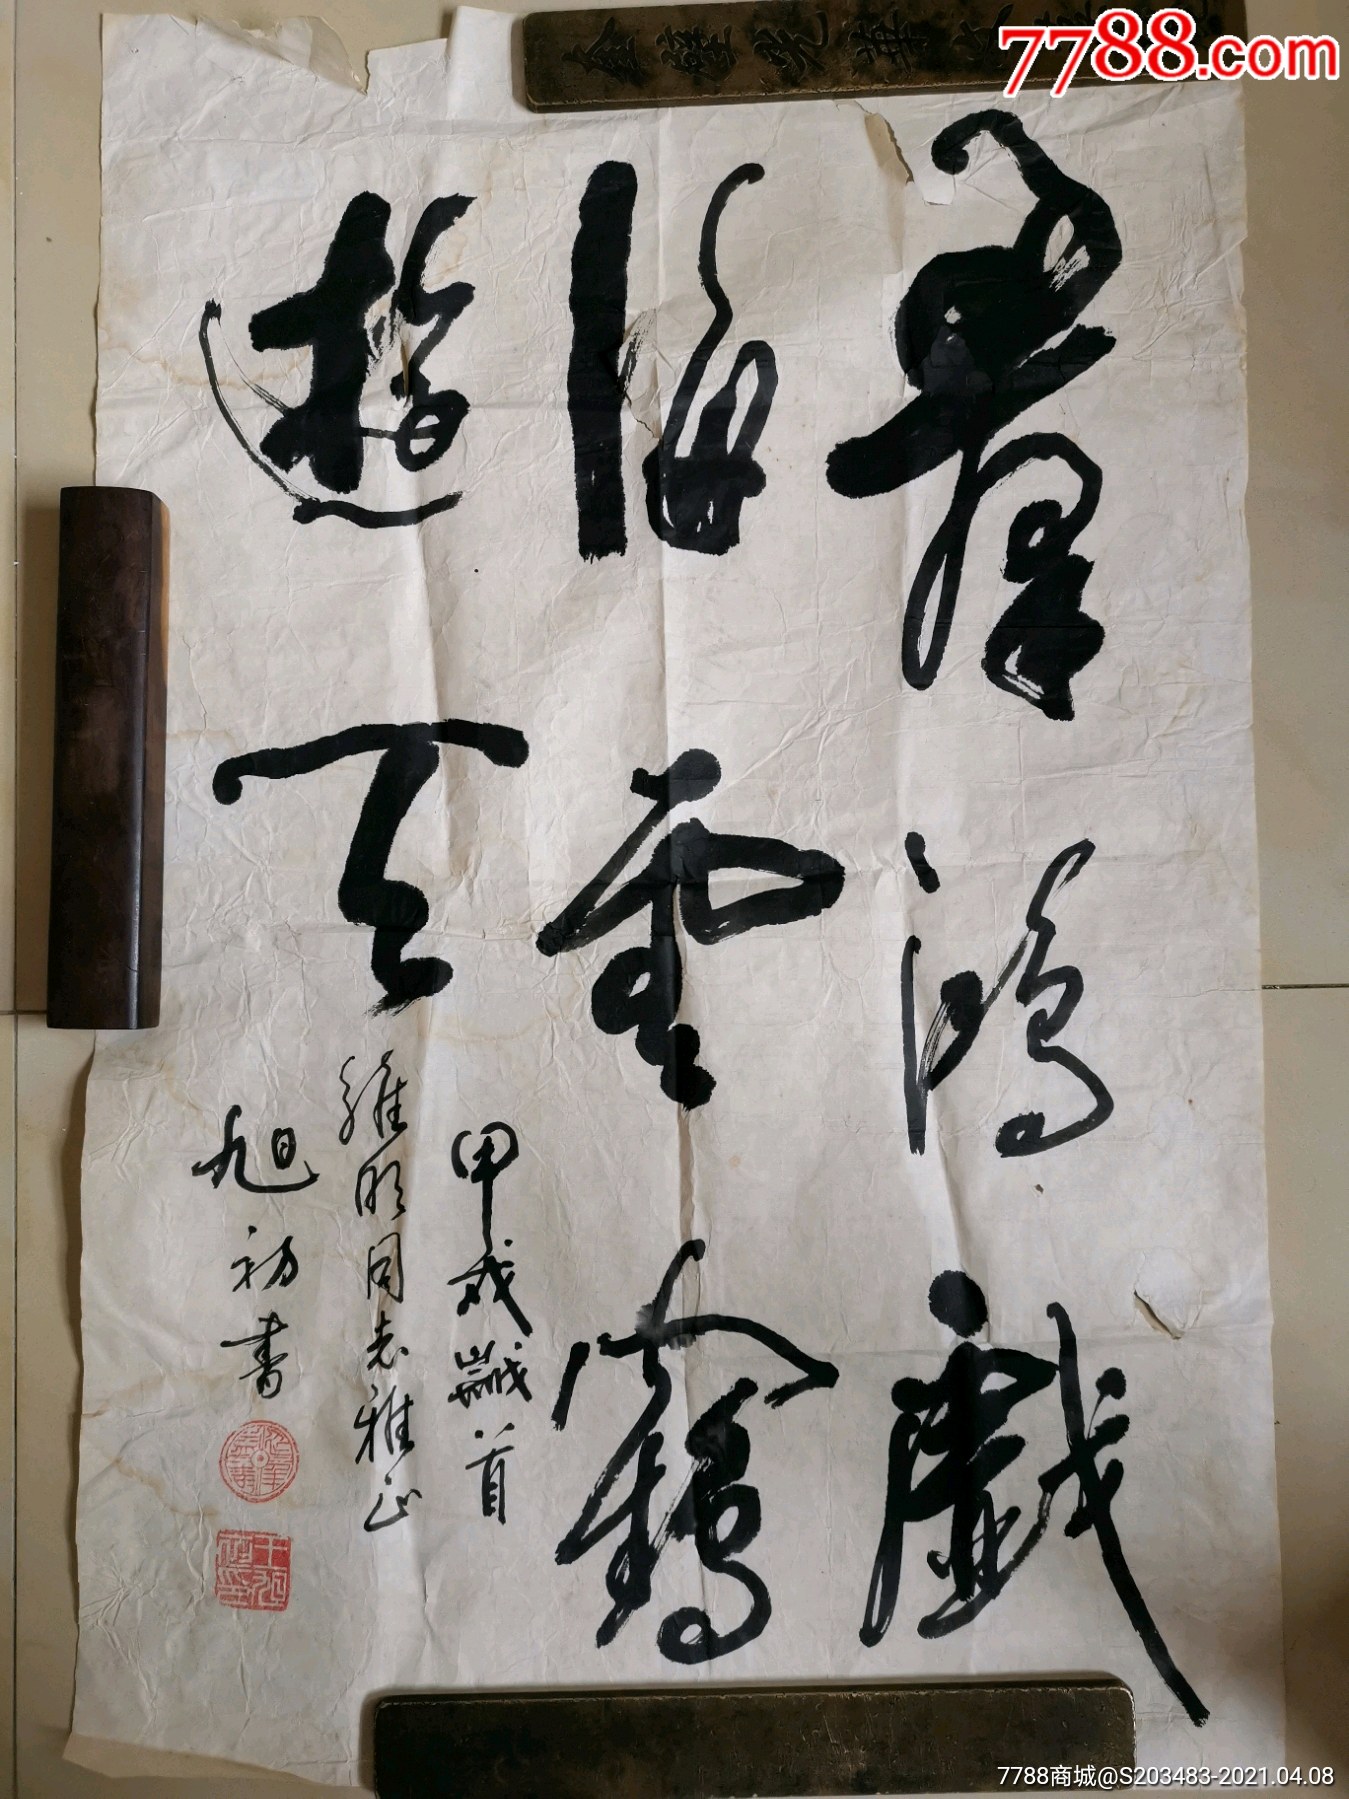 7788.com
羣鴻戲
海雲鶴
遊天
甲戌歲首
維明同志雅正
旭初書
7788商城@S203483-2021.04.08